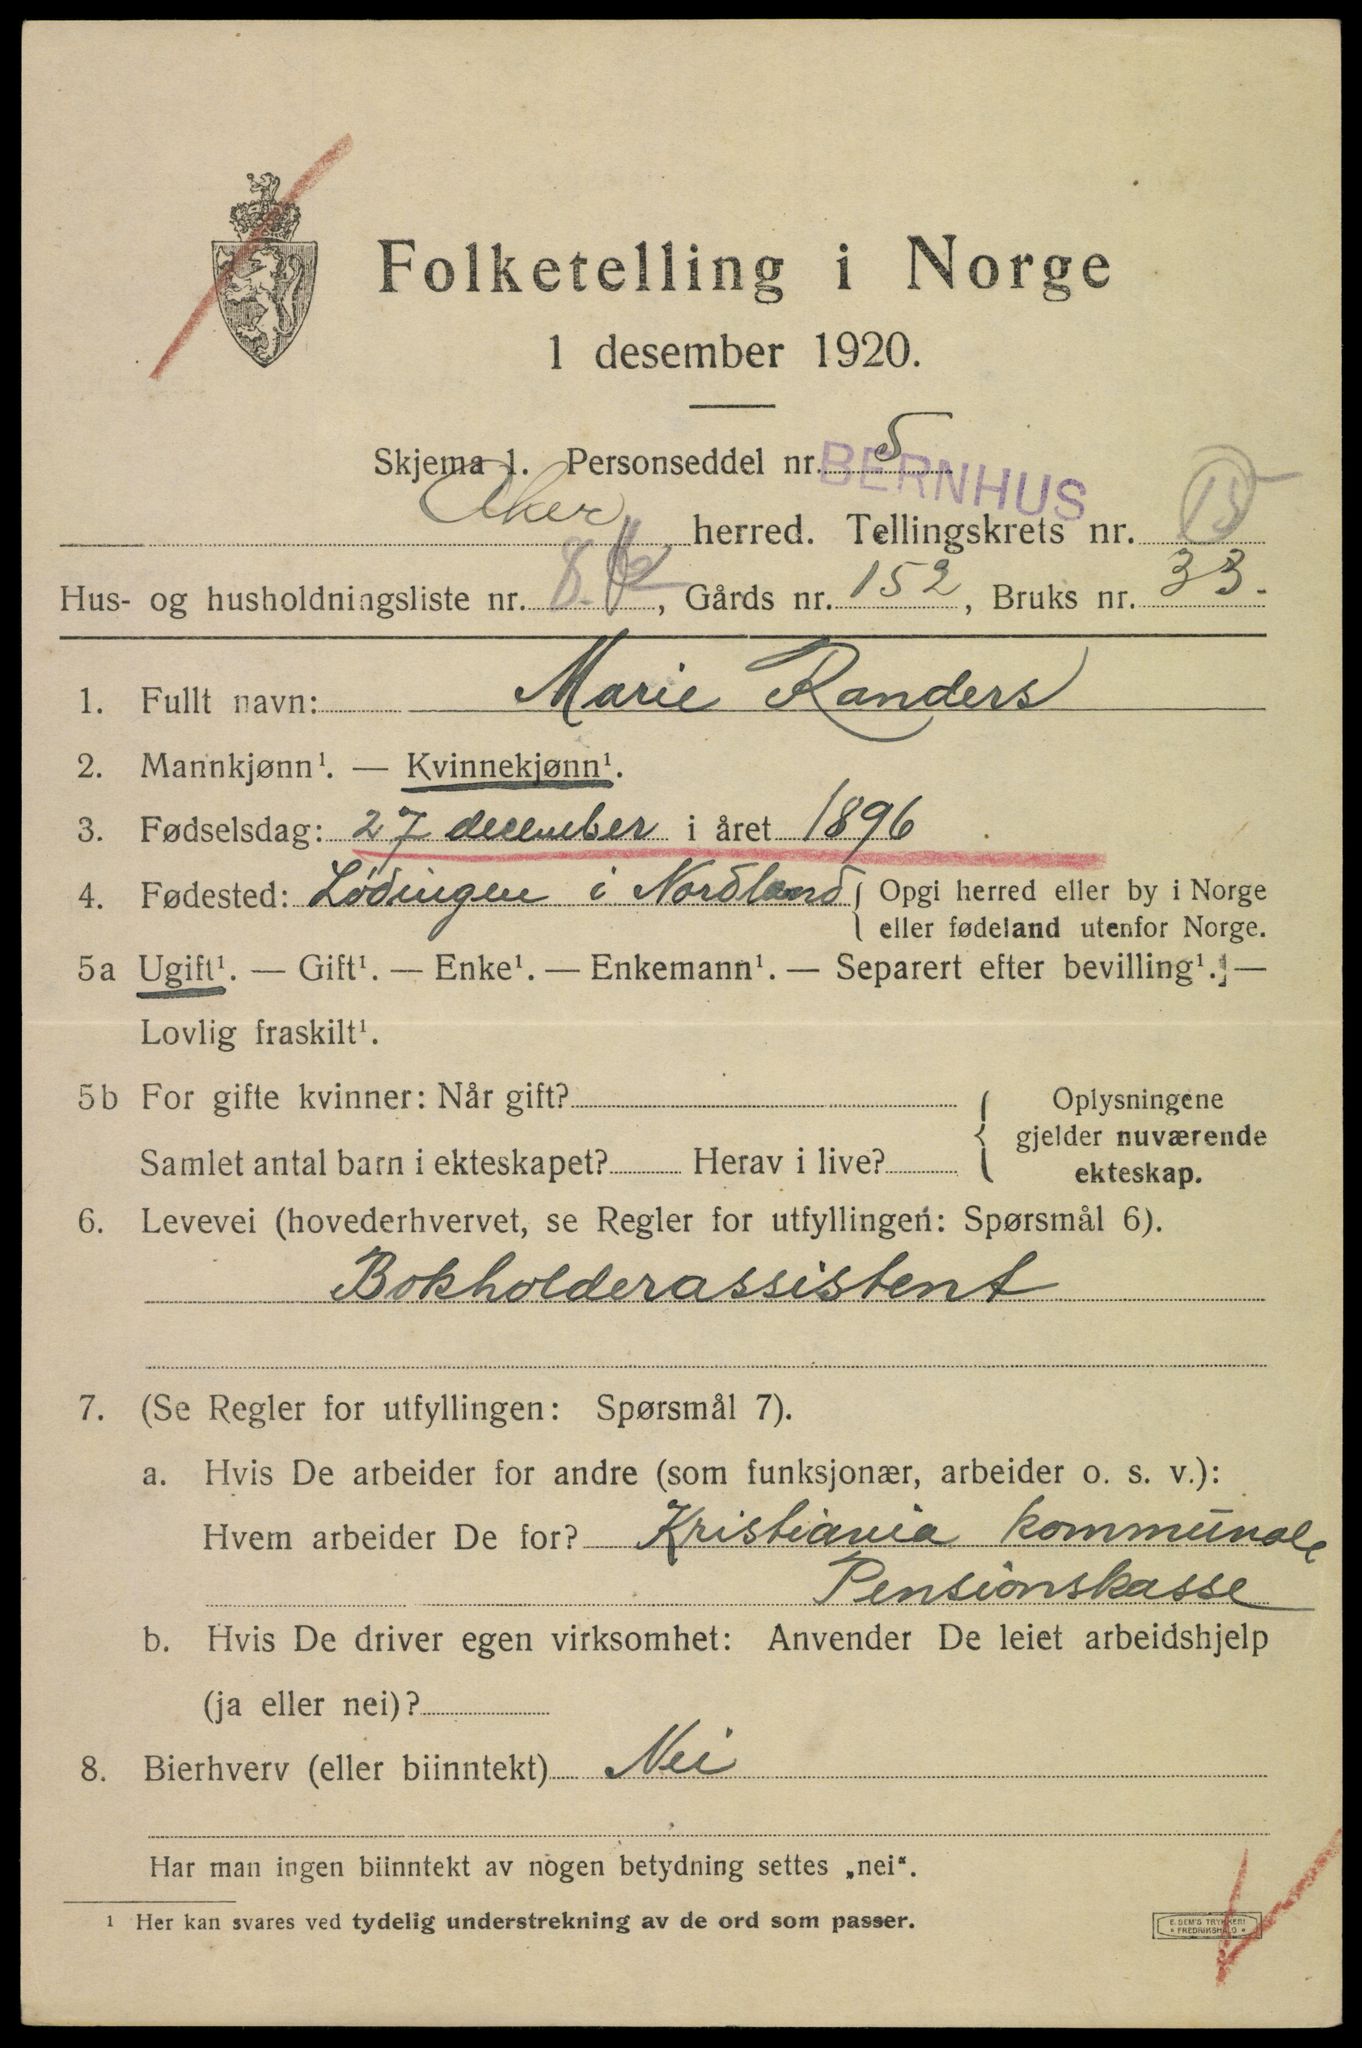 Folketelling i Norge
1 desember 1920.
Skjema 1. Personseddel nr. 5
BERNHUS
Aker herred. Tellingskrets nr. 15
Hus- og husholdningsliste nr. 8, Gårds nr. 152, Bruks nr. 33.
1. Fullt navn: Marie Randers
2. Mannkjønn¹. — Kvinnekjønn¹.
3. Fødselsdag: 27 december i året 1896
4. Fødested: Lødingen i Nordland { Opgi herred eller by i Norge
eller fødeland utenfor Norge.
5a Ugift¹. — Gift¹. — Enke¹. — Enkemann¹. — Separert efter bevilling¹. —
Lovlig fraskilt¹.
5b For gifte kvinner: Når gift?
Samlet antal barn i ekteskapet? Herav i live?
{ Oplysningene
gjelder nuværende
ekteskap.
6. Levevei (hovederhvervet, se Regler for utfyllingen: Spørsmål 6).
Bokholderassistent
7. (Se Regler for utfyllingen: Spørsmål 7).
a. Hvis De arbeider for andre (som funksjonær, arbeider o. s. v.):
Hvem arbeider De for? Kristiania kommunale
Pensionskasse
b. Hvis De driver egen virksomhet: Anvender De leiet arbeidshjelp
(ja eller nei)?
8. Bierhverv (eller biinntekt) Nei
Har man ingen biinntekt av nogen betydning settes „nei“.
¹ Her kan svares ved tydelig understrekning av de ord som passer.
E. SEM'S TRYKKERI
FREDRIKSHALD